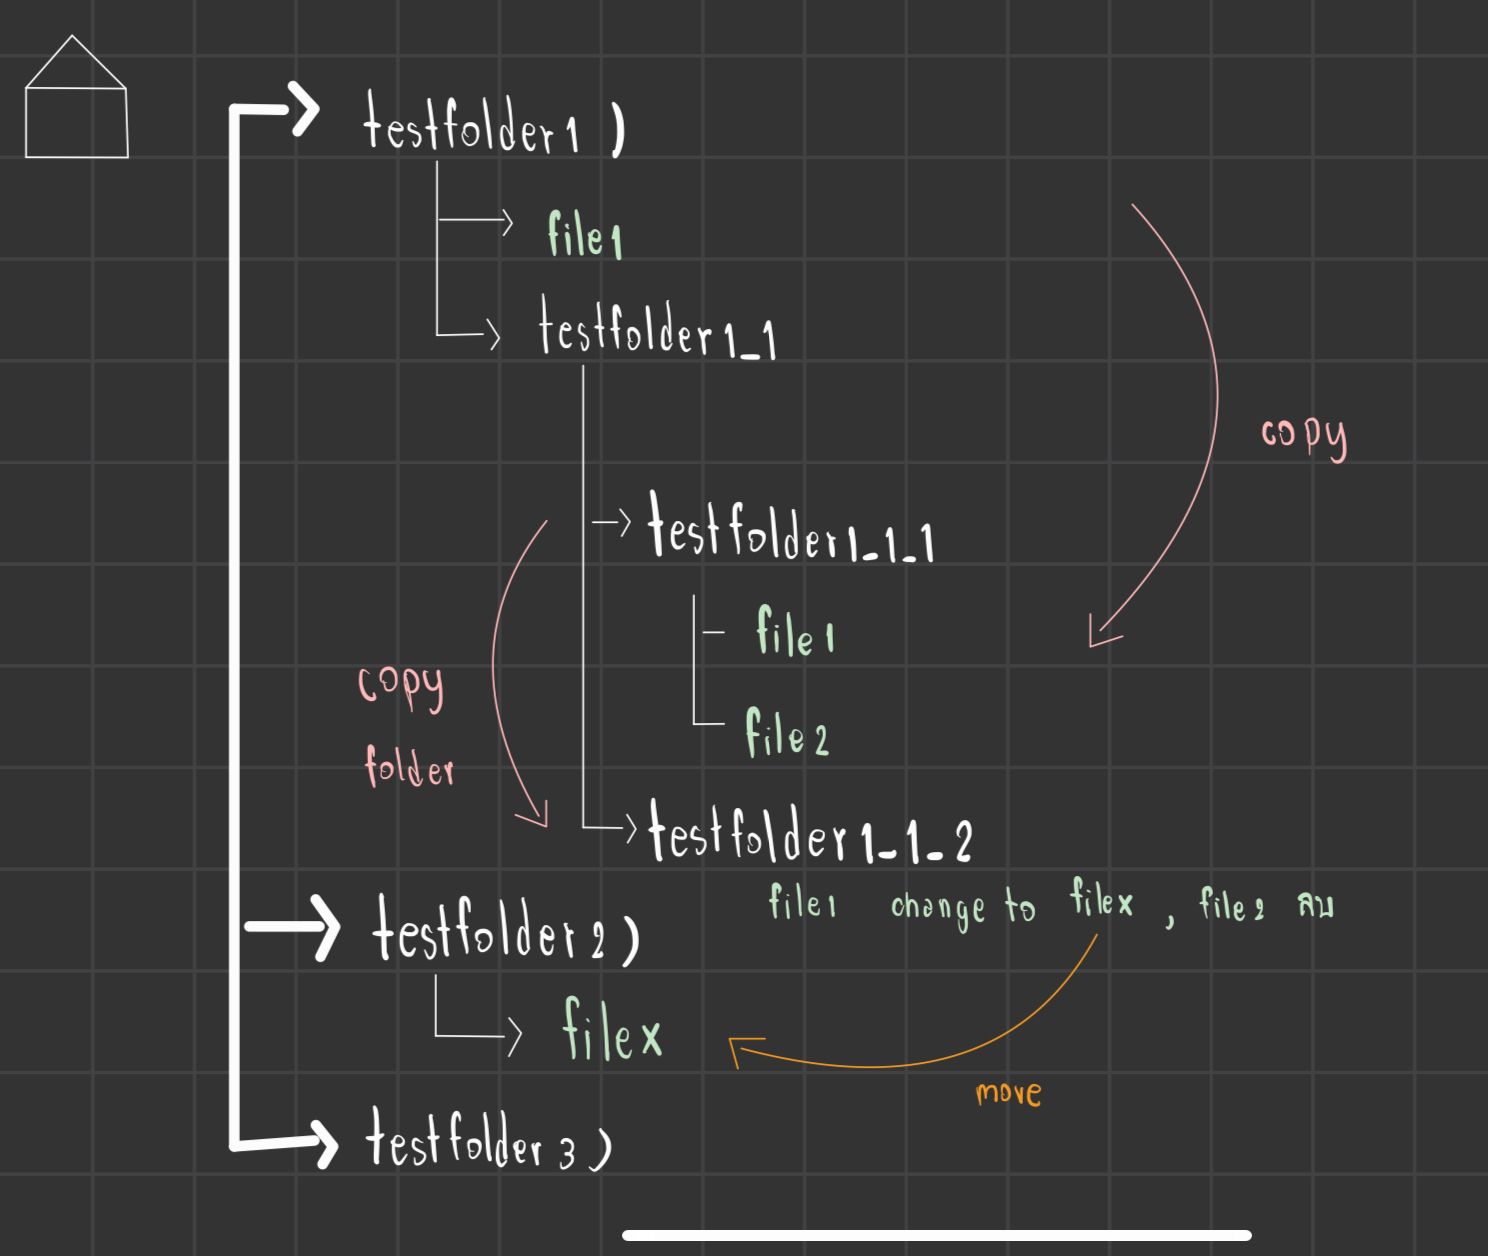 testfolder1 )
file1
testfolder1_1
copy
testfolder1_1_1
file1
copy
folder
file2
testfolder1_1_2
file1 change to filex , file2 ลบ
testfolder2)
filex
move
testfolder3)